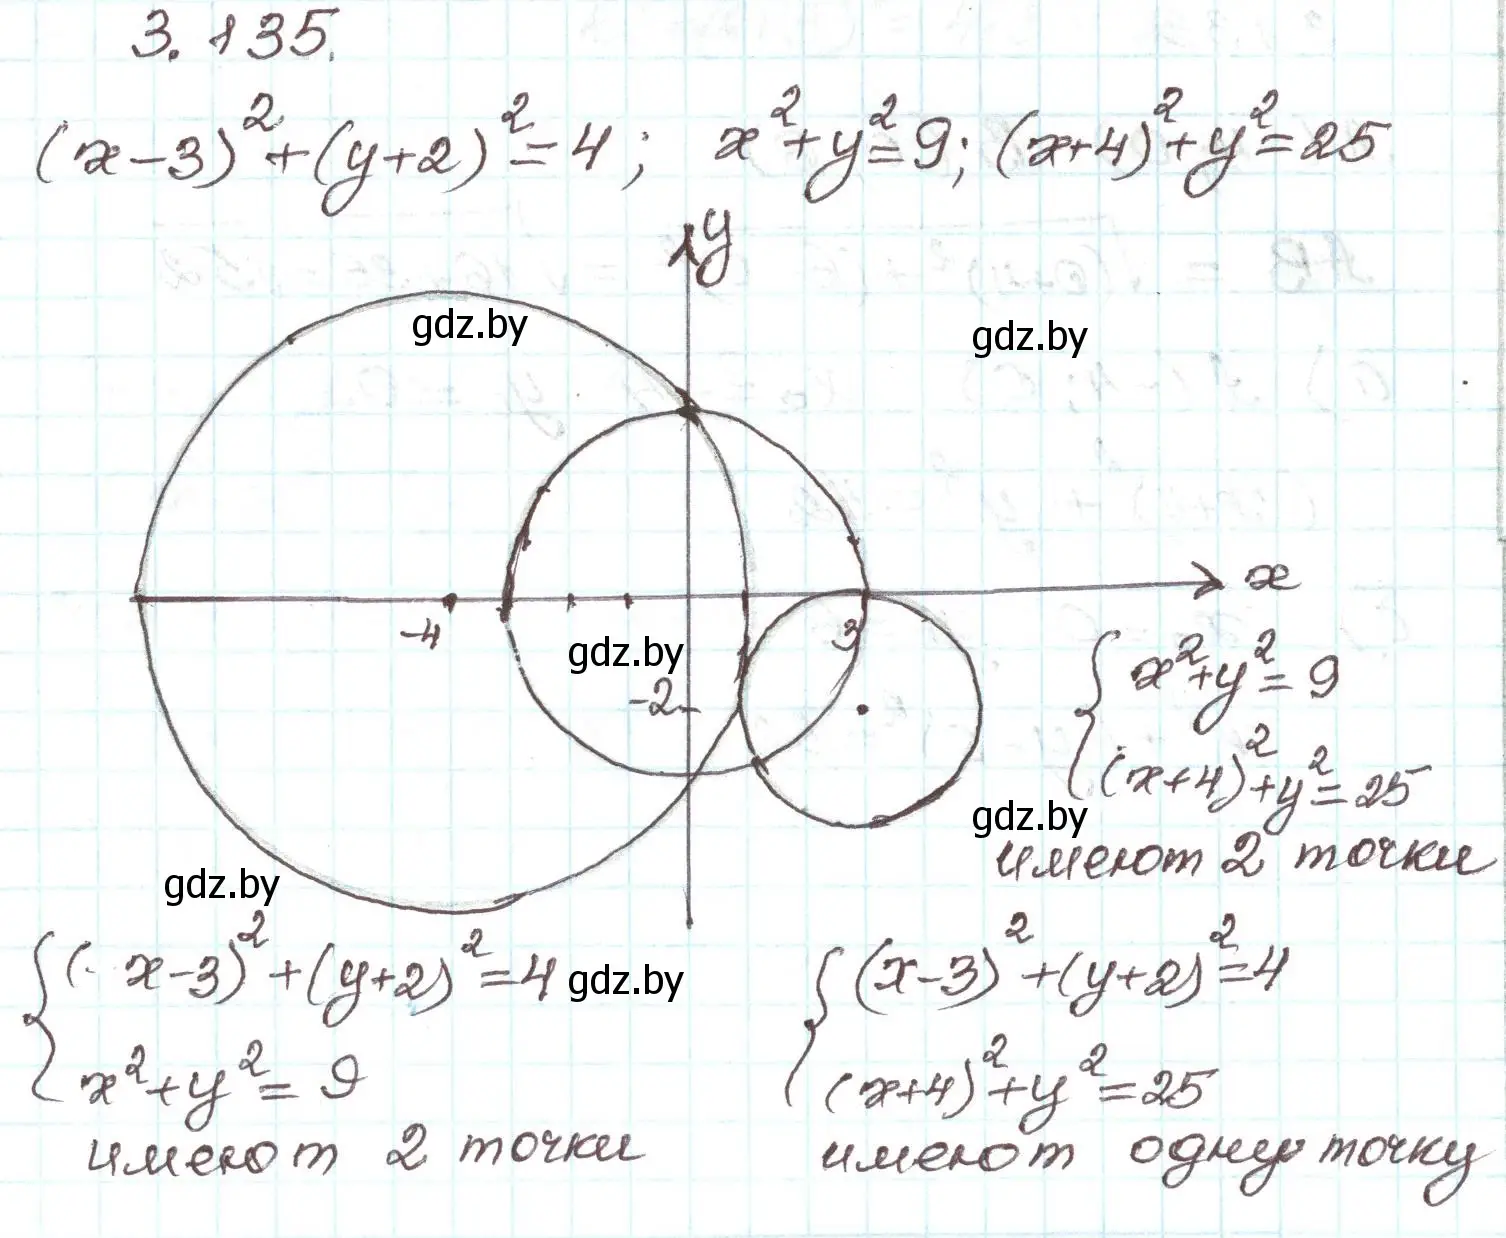 3.135.
(x-3)²+(y+2)²=4; x²+y²=9; (x+4)²+y²=25
y
gdz.by
gdz.by
x
-4
3
gdz.by
-2
{ x²+y²=9
(x+4)²+y²=25
gdz.by
имеют 2 точки
gdz.by
{ (x-3)²+(y+2)²=4
x²+y²=9
имеют 2 точки
gdz.by
{ (x-3)²+(y+2)²=4
(x+4)²+y²=25
имеют одну точку